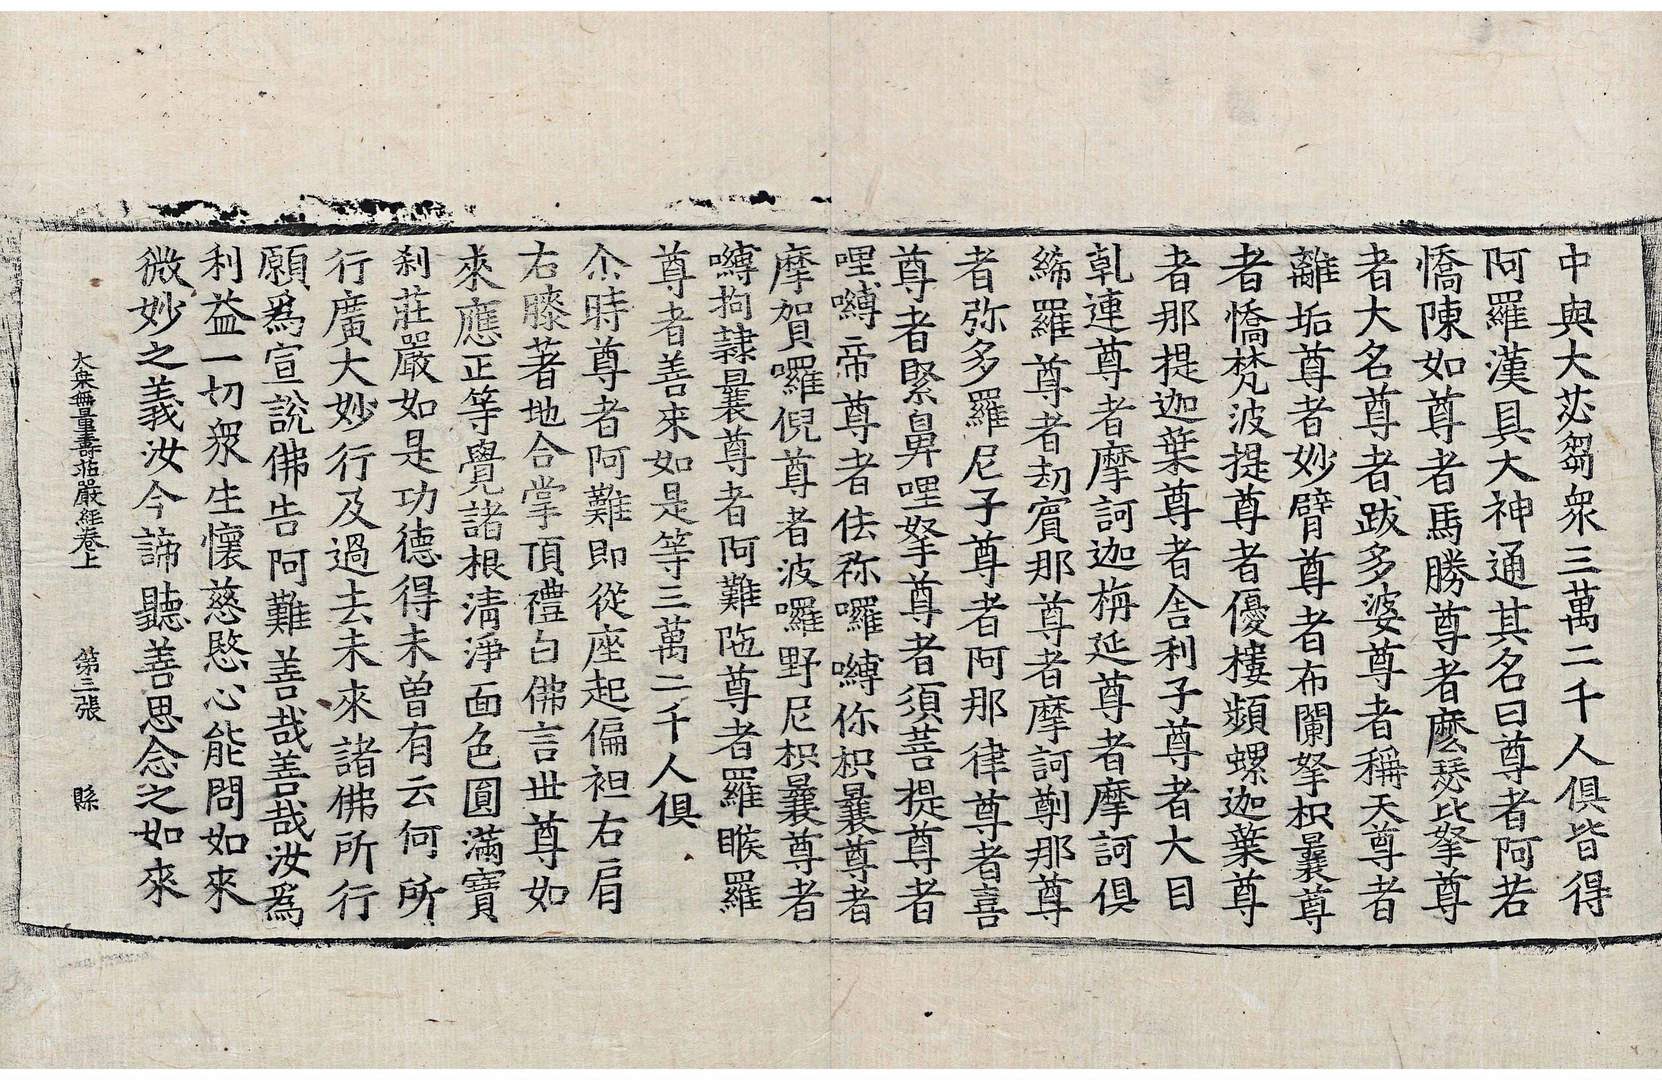 中與大苾芻衆三萬二千人俱皆得
阿羅漢具大神通其名曰尊者阿若
憍陳如尊者馬勝尊者麽瑟比拏尊
者大名尊者跋多婆尊者稱天尊者
離垢尊者妙臂尊者布闌拏枳曩尊
者憍梵波提尊者優樓頻螺迦葉尊
者那提迦葉尊者舍利子尊者大目
乹連尊者摩訶迦栴延尊者摩訶俱
絺羅尊者刼賔那尊者摩訶剸那尊
者弥多羅尼子尊者阿那律尊者喜
尊者緊鼻哩拏尊者須菩提尊者
哩嚩帝尊者佉祢囉嚩你枳曩尊者
摩賀囉倪尊者波囉野尼枳曩尊者
嚩拘隷曩尊者阿難陁尊者羅睺羅
尊者善來如是等三萬二千人俱
尒時尊者阿難即從座起偏袒右肩
右膝著地合掌頂禮白佛言世尊如
來應正等覺諸根清淨面色圓滿寶
刹莊嚴如是功德得未曾有云何所
行廣大妙行及過去未來諸佛所行
願爲宣說佛告阿難善哉善哉汝爲
利益一切衆生懷慈愍心能問如來
微妙之義汝今諦聽善思念之如來
大衆無量壽莊嚴經卷上　第三張　縣